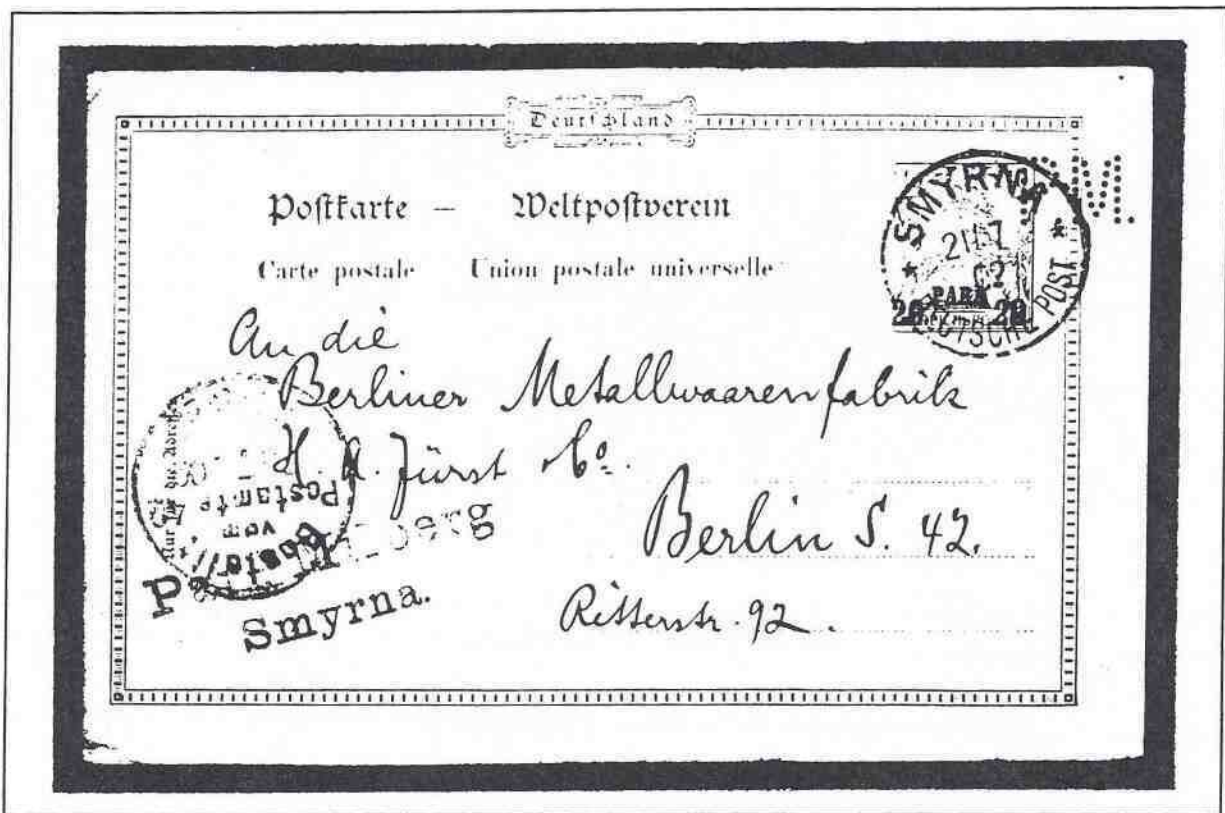 Deutschland
Postkarte – Weltpostverein
Carte postale Union postale universelle
SMYRNA
* *
DEUTSCHE POST
PARA
20 20
P.M.
An die
Berliner Metallwaarenfabrik
H. A. Jürst & Co.
Berlin S. 42.
Ritterstr. 92.
Nur für die Adresse
Bestellt
vom
Postamte
Smyrna.